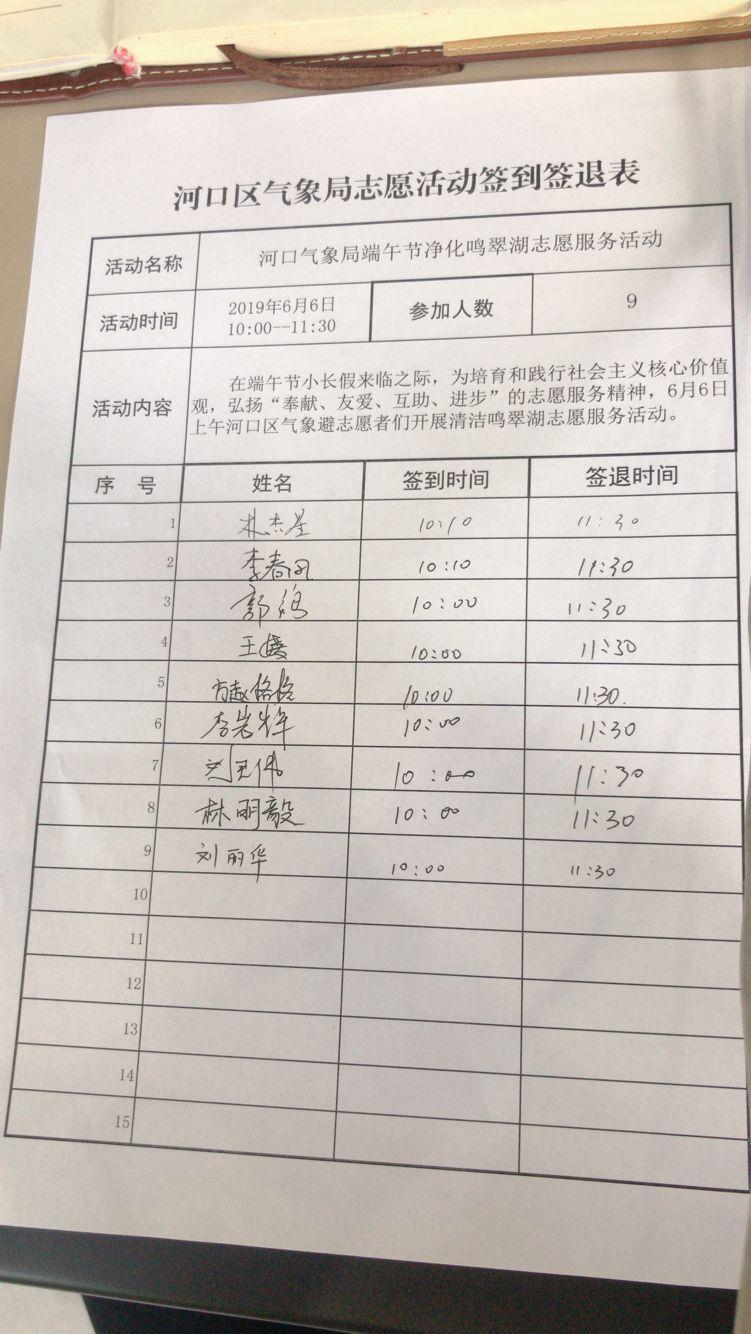 河口区气象局志愿活动签到签退表
活动名称 河口气象局端午节净化鸣翠湖志愿服务活动
活动时间 2019年6月6日 10:00--11:30 参加人数 9
活动内容 在端午节小长假来临之际，为培育和践行社会主义核心价值
观，弘扬“奉献、友爱、互助、进步”的志愿服务精神，6月6日
上午河口区气象避志愿者们开展清洁鸣翠湖志愿服务活动。
序 号 姓名 签到时间 签退时间
1 10:10 11:30
2 李春风 10:10 11:30
3 郭 10:00 11:30
4 王 10:00 11:30
5 10:00 11:30.
6 李岩烽 10:00 11:30
7 刘 伟 10:00 11:30
8 林明毅 10:00 11:30
9 刘丽华 10:00 11:30
10
11
12
13
14
15